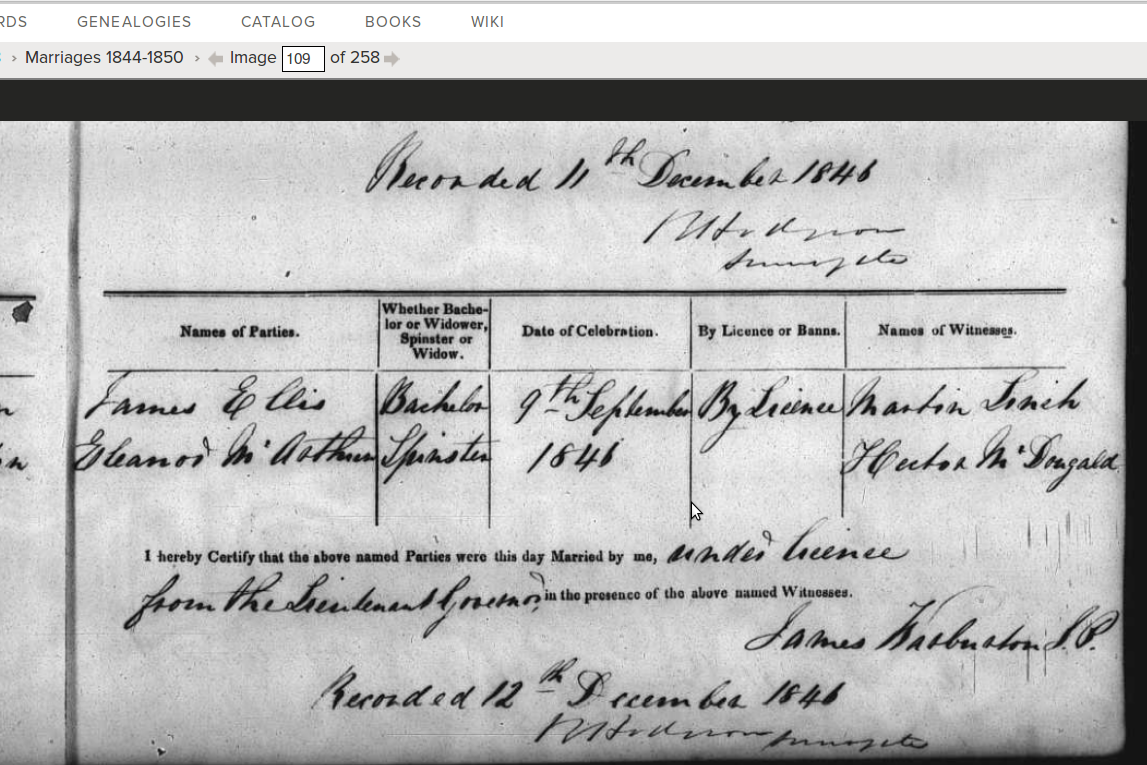 RDS GENEALOGIES CATALOG BOOKS WIKI
› Marriages 1844-1850 › Image 109 of 258
Recorded 11th December 1846
Hodgson
Surrogate
Names of Parties. Whether Bache-lor or Widower, Spinster or Widow. Date of Celebration. By Licence or Banns. Names of Witnesses.
James Ellis Bachelor 9th September By Licence Martin Linch
Eleanor Mc Arthur Spinster 1846 Hector Mc Dougald
I hereby Certify that the above named Parties were this day Married by me, under licence
from the Lieutenant Governor in the presence of the above named Witnesses.
James Warburton J.P.
Recorded 12th December 1846
Hodgson Surrogate